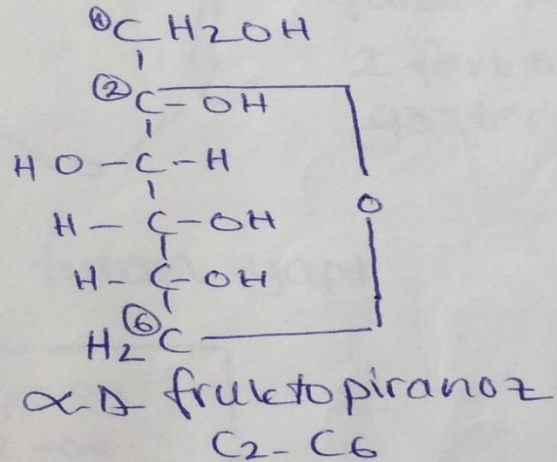 ①CH2OH
②C-OH
HO-C-H
O
H-C-OH
H-C-OH
H2⑥C
α-D fruktopiranoz
C2-C6